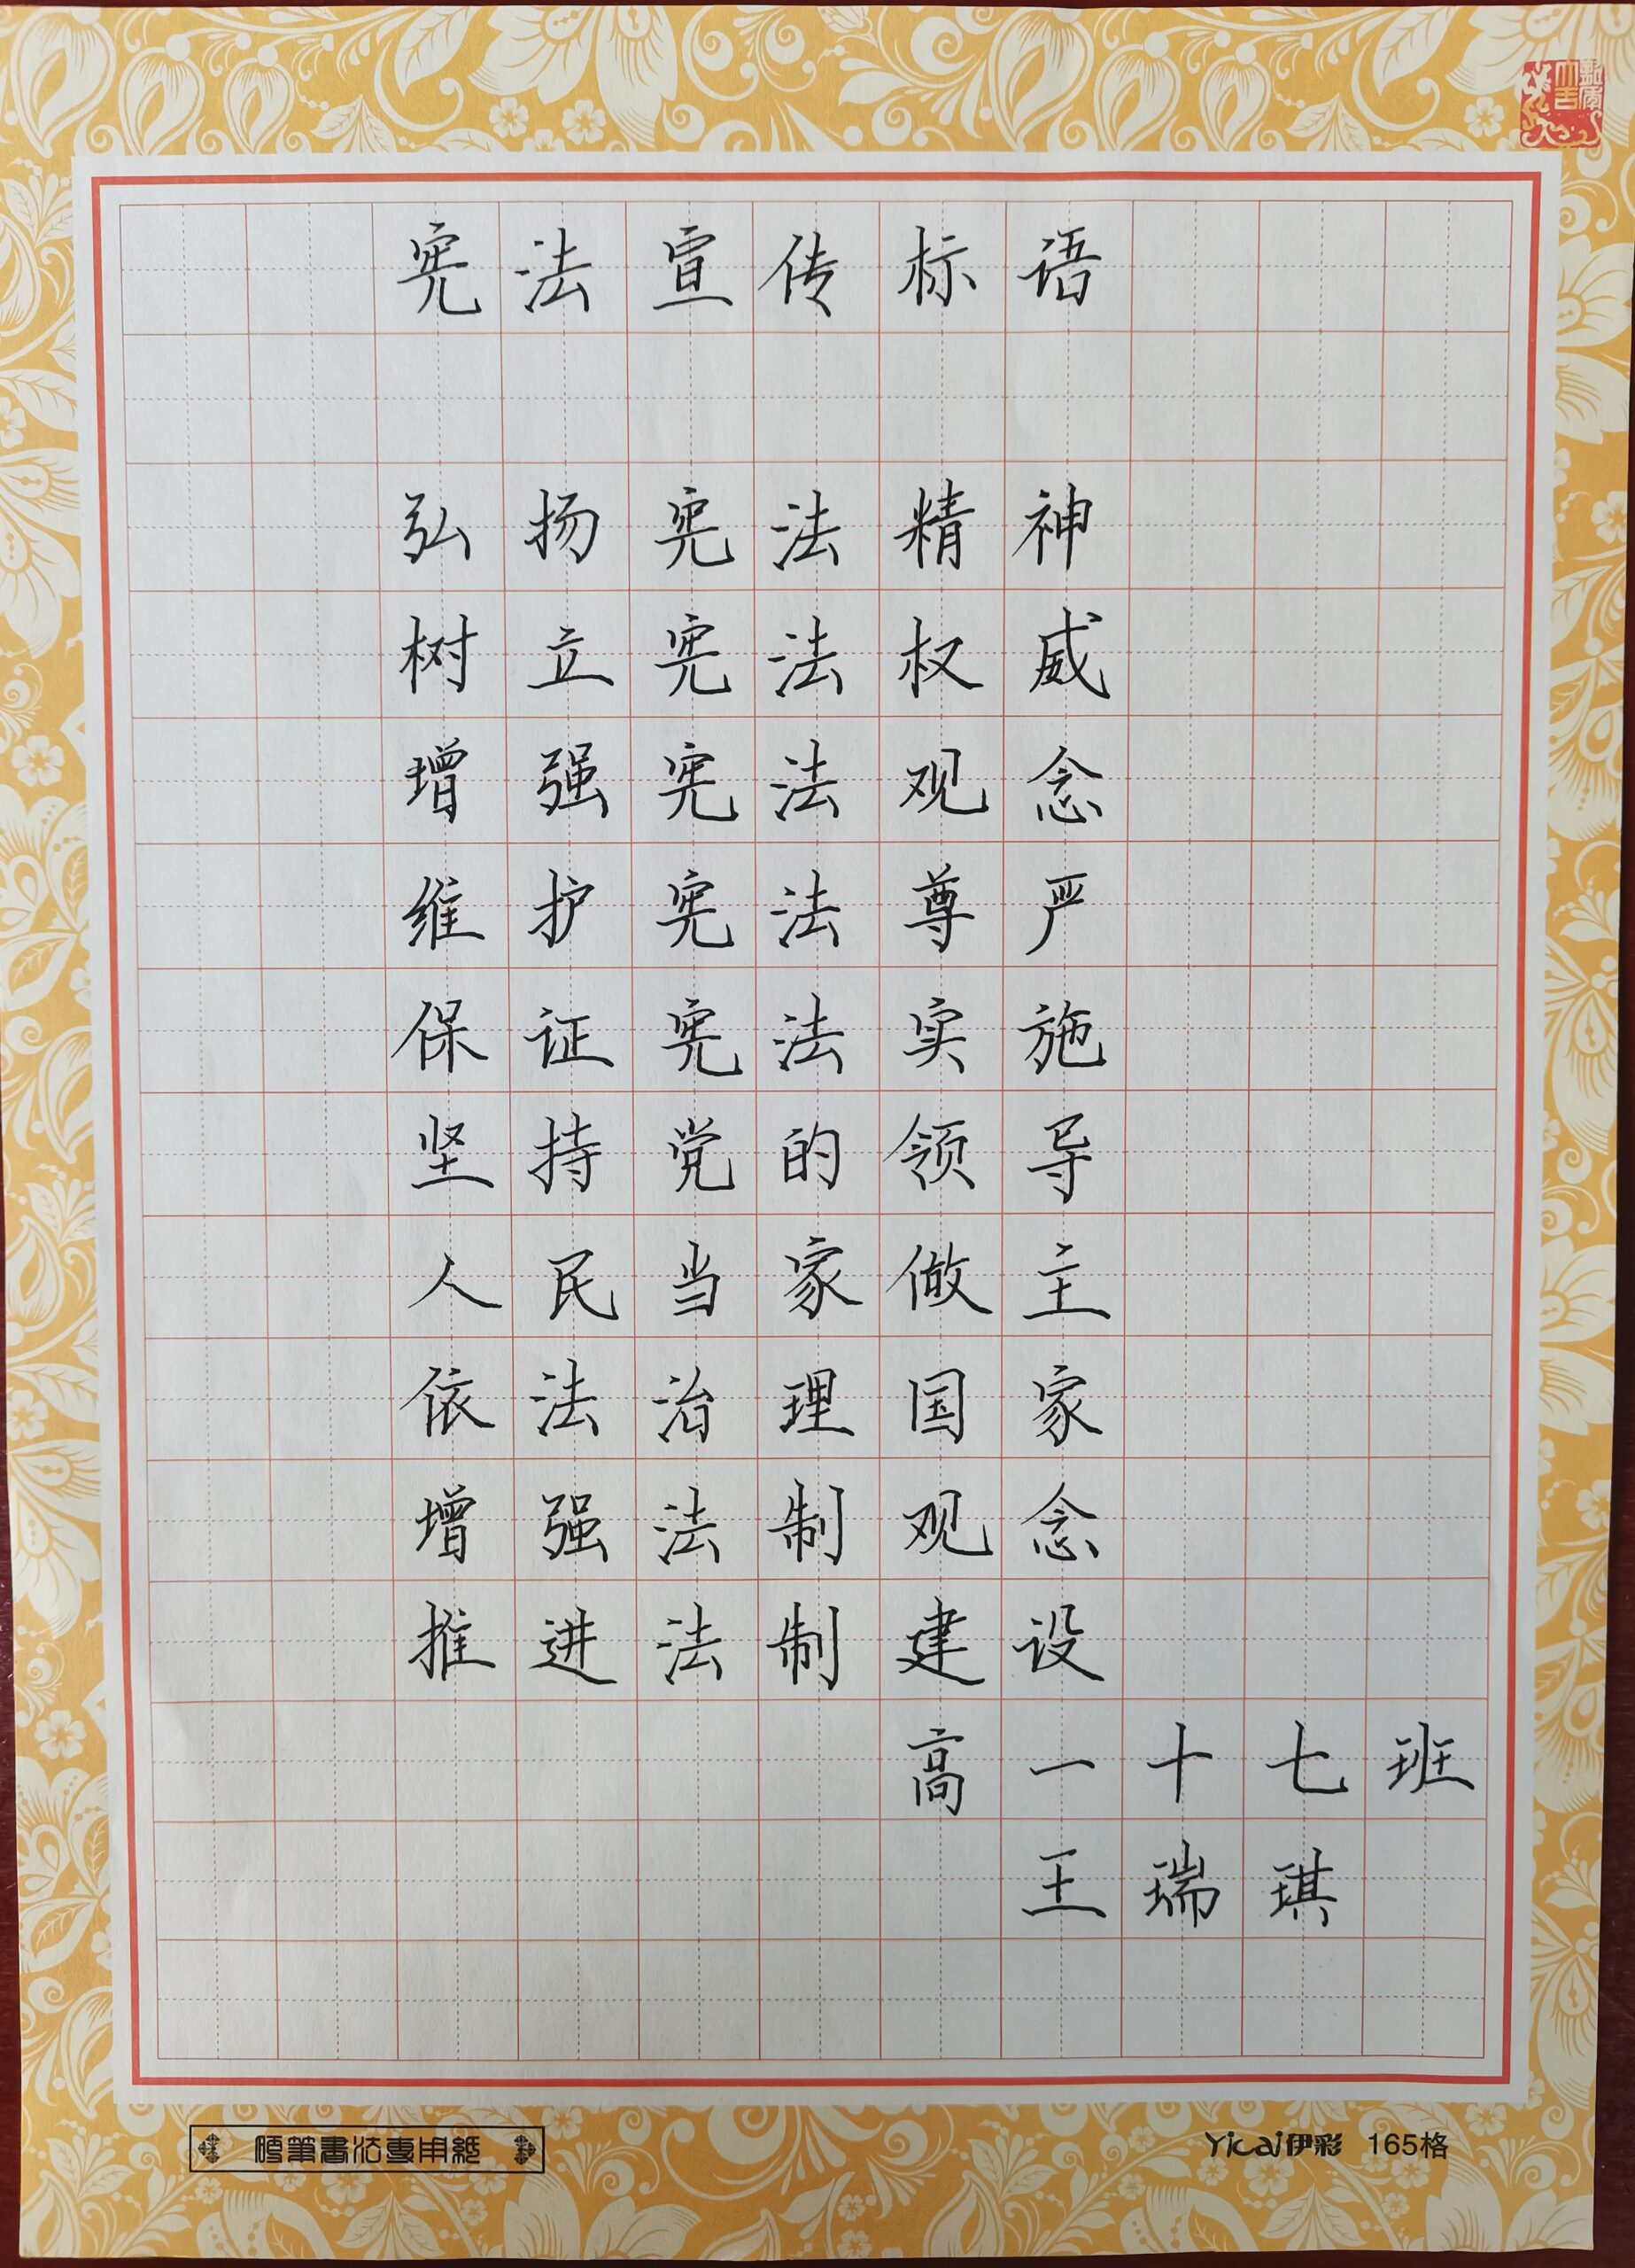 宪法宣传标语
弘扬宪法精神
树立宪法权威
增强宪法观念
维护宪法尊严
保证宪法实施
坚持党的领导
人民当家做主
依法治理国家
增强法制观念
推进法制建设
高一十七班
王瑞琪
硬筆書法專用紙
Yicai伊彩 165格